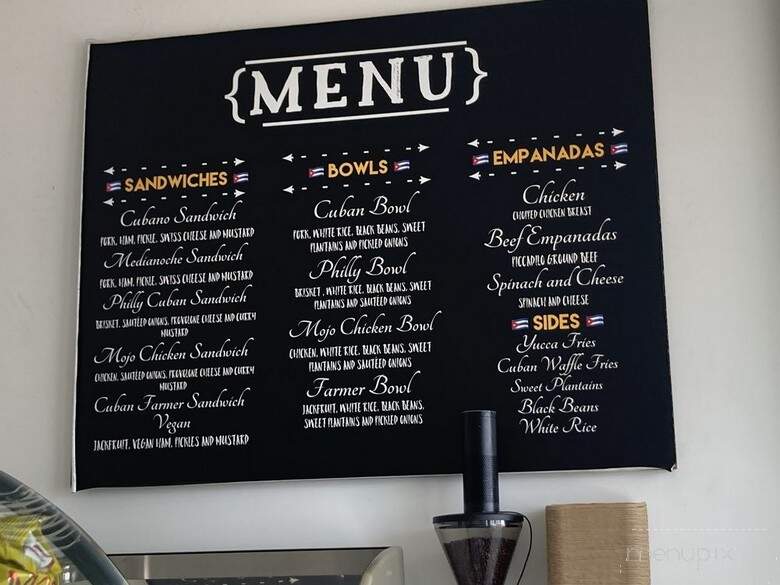 {MENU}
SANDWICHES
Cubano Sandwich
PORK, HAM, PICKLE, SWISS CHEESE AND MUSTARD
Medianoche Sandwich
PORK, HAM, PICKLE, SWISS CHEESE AND MUSTARD
Philly Cuban Sandwich
BRISKET, SAUTEED ONIONS, PROVOLONE CHEESE AND CURRY
MUSTARD
Mojo Chicken Sandwich
CHICKEN, SAUTEED ONIONS, PROVOLONE CHEESE AND CURRY
MUSTARD
Cuban Farmer Sandwich
Vegan
JACKFRUIT, VEGAN HAM, PICKLES AND MUSTARD
BOWLS
Cuban Bowl
PORK, WHITE RICE, BLACK BEANS, SWEET
PLANTAINS AND PICKLED ONIONS
Philly Bowl
BRISKET, WHITE RICE, BLACK BEANS, SWEET
PLANTAINS AND SAUTEED ONIONS
Mojo Chicken Bowl
CHICKEN, WHITE RICE, BLACK BEANS, SWEET
PLANTAINS AND SAUTEED ONIONS
Farmer Bowl
JACKFRUIT, WHITE RICE, BLACK BEANS,
SWEET PLANTAINS AND PICKLED ONIONS
EMPANADAS
Chicken
CHOPPED CHICKEN BREAST
Beef Empanadas
PICCADILO GROUND BEEF
Spinach and Cheese
SPINACH AND CHEESE
SIDES
Yucca Fries
Cuban Waffle Fries
Sweet Plantains
Black Beans
White Rice
menupix